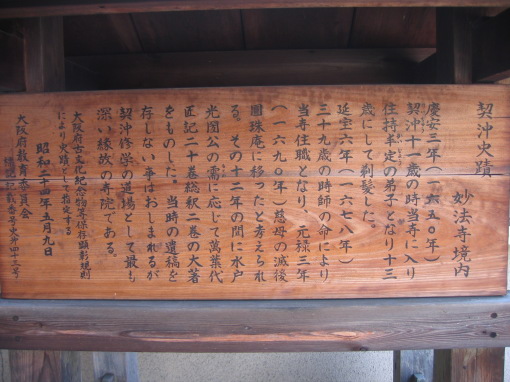 契沖史蹟
妙法寺境内
慶安三年(一六五〇年)
契沖十一歳の時当寺に入り
住持丰定の弟子となり十三
歳にして剃髪した。
延宝六年(一六七八年)
三十九歳の時師の命により
当寺住職となり、元禄三年
(一六九〇年)慈母の滅後
圓珠庵に移ったと考えられ
る。その十二年の間に水戸
光圀公の需に応じて萬葉代
匠記二十巻総釈二巻の大著
をものした。当時の遺稿を
存しない事はおしまれるが
契沖修学の道場として最も
深い縁故の寺院である。
大阪府古文化紀念物等保存顕彰規則
により史蹟として指定する
昭和二十四年五月九日
大阪府教育委員会